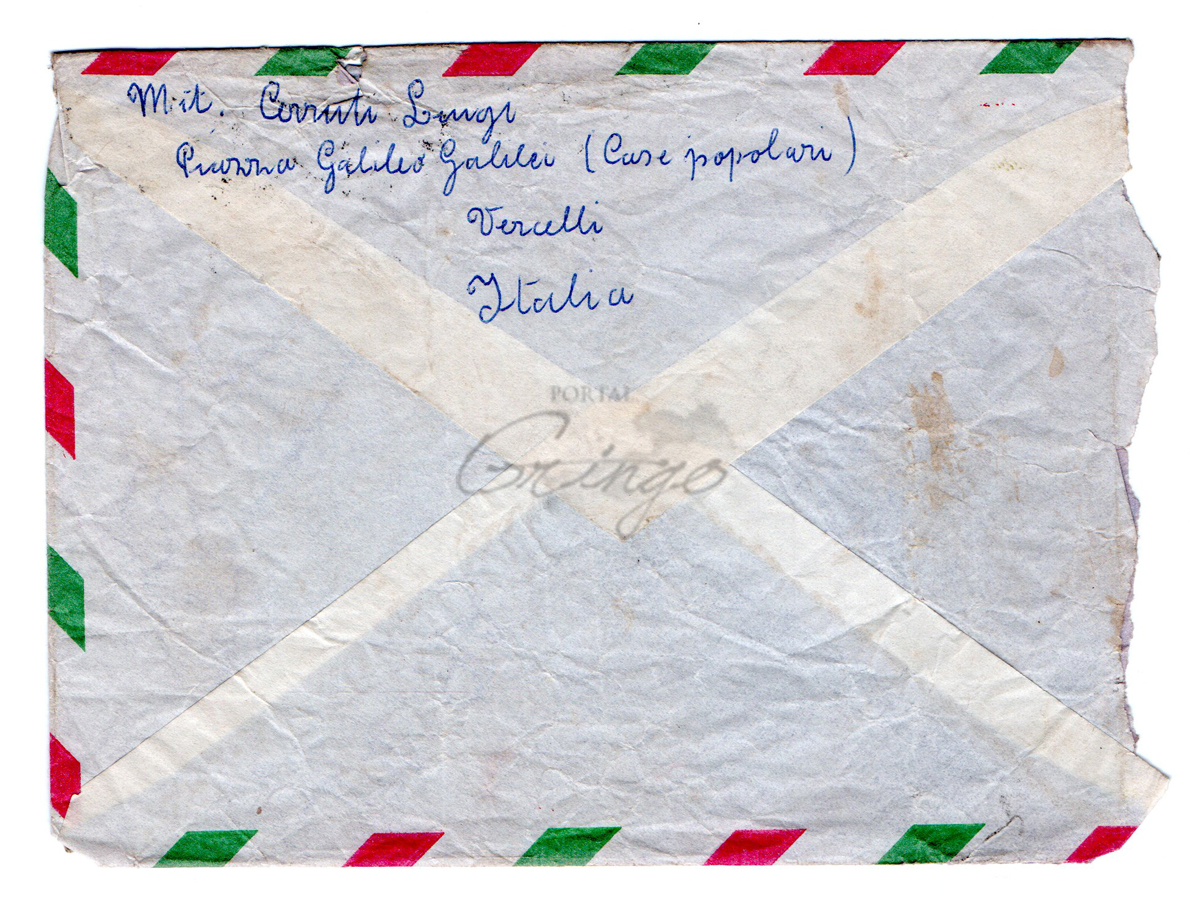 Mit. Cerruti Luigi
Piazza Galileo Galilei (Case popolari)
Vercelli
Italia
PORTAL
Gringo